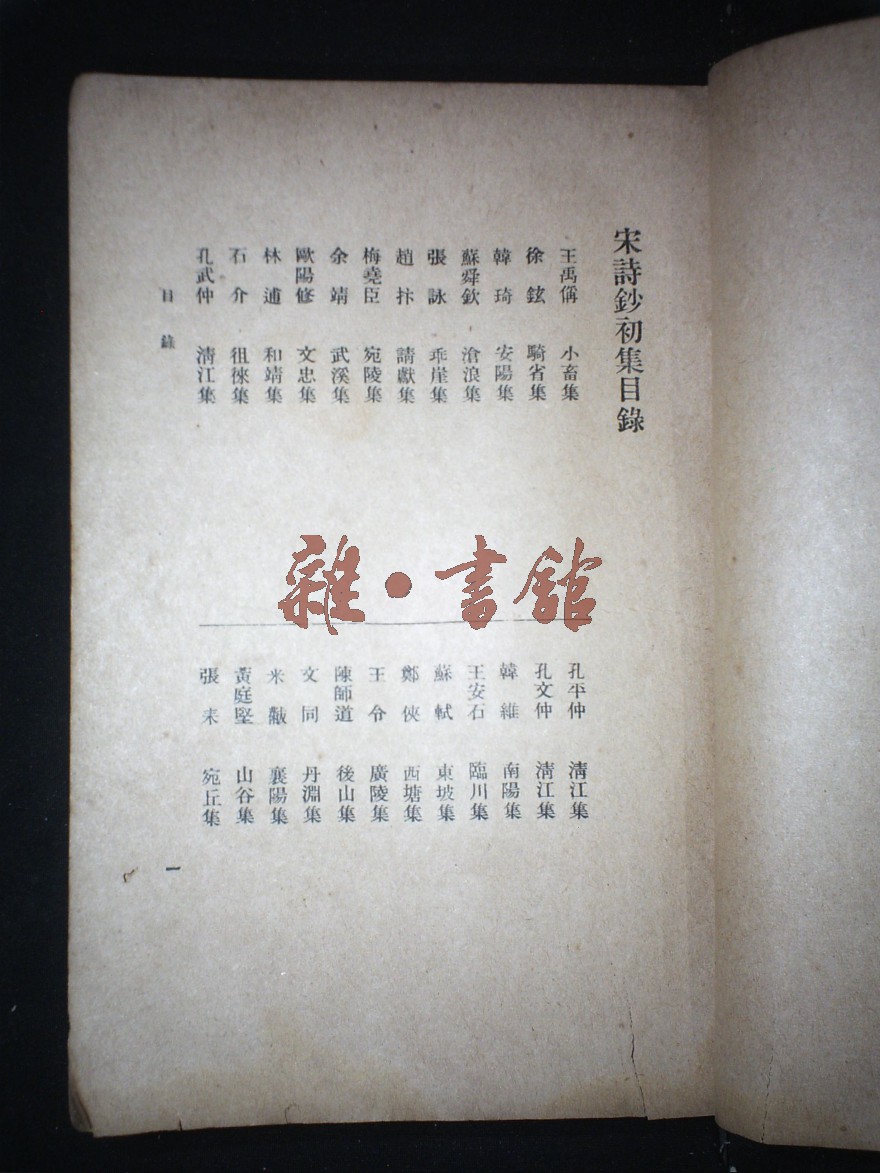 宋詩鈔初集目錄
王禹偁 小畜集
徐鉉 騎省集
韓琦 安陽集
蘇舜欽 滄浪集
張詠 乖崖集
趙抃 請獻集
梅堯臣 宛陵集
余靖 武溪集
歐陽修 文忠集
林逋 和靖集
石介 徂徠集
孔武仲 淸江集
雜·書館
孔平仲 淸江集
孔文仲 淸江集
韓維 南陽集
王安石 臨川集
蘇軾 東坡集
鄭俠 西塘集
王令 廣陵集
陳師道 後山集
文同 丹淵集
米黻 襄陽集
黃庭堅 山谷集
張耒 宛丘集
目錄
一